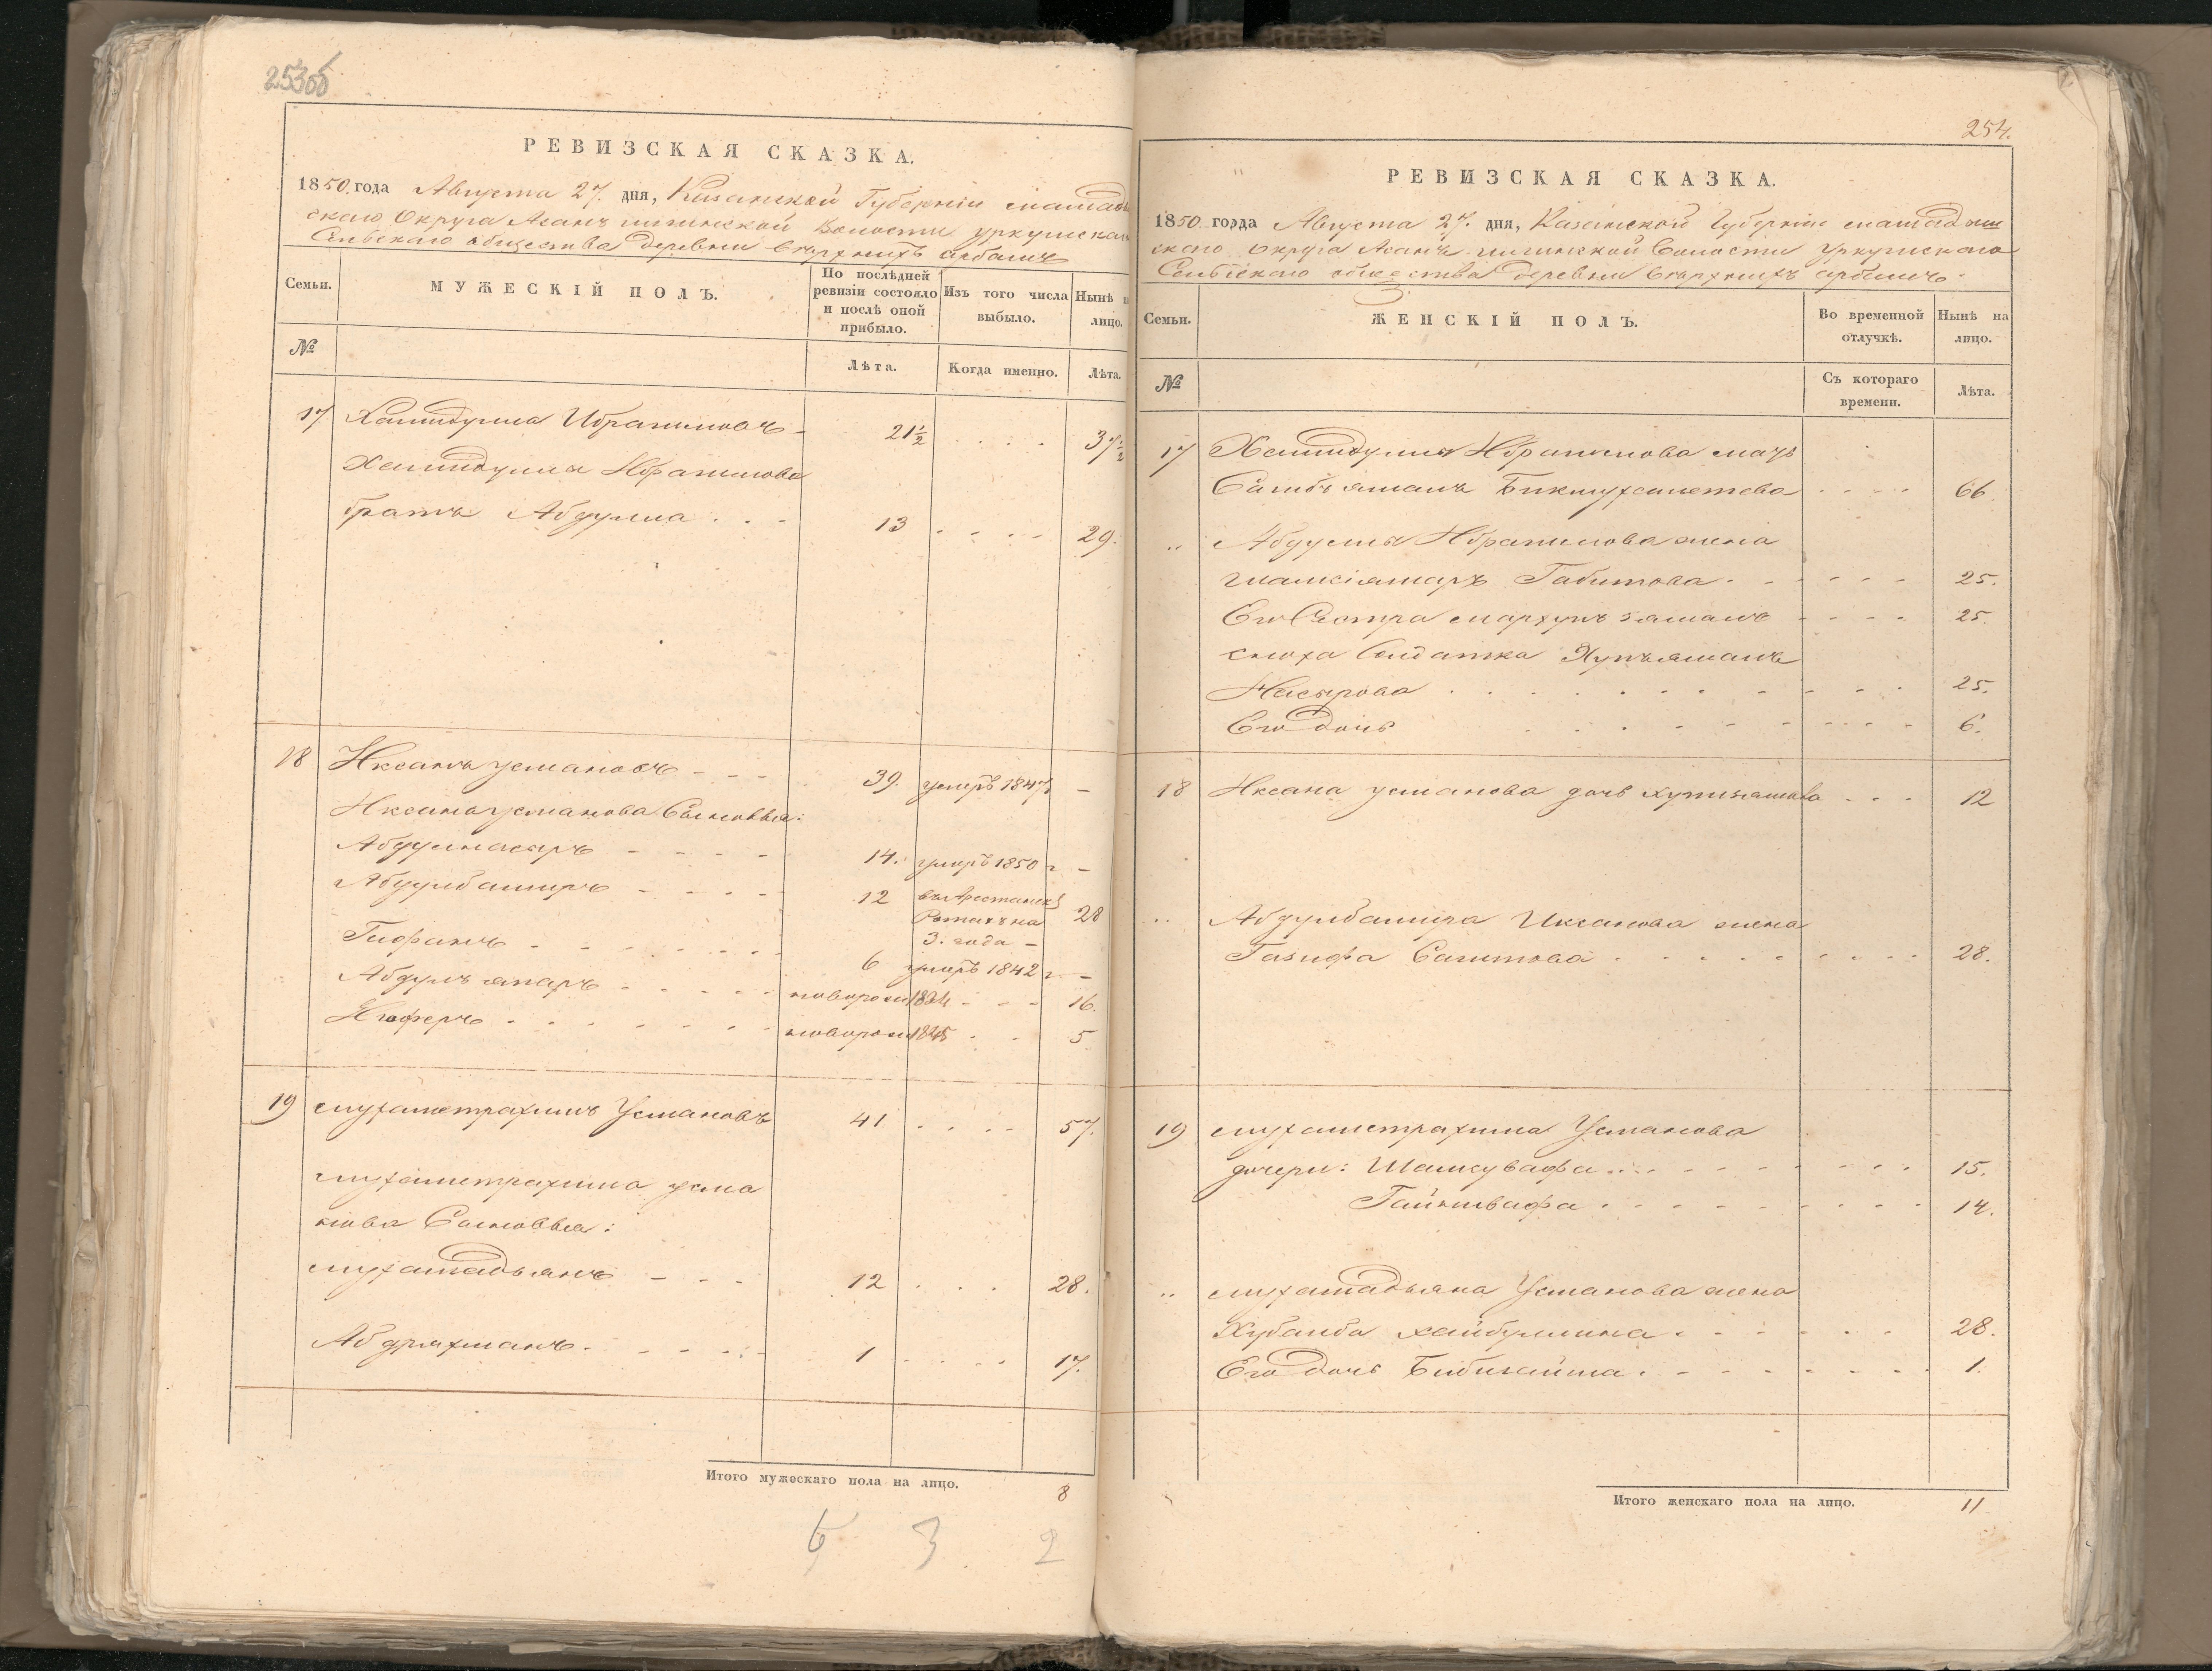 253об
РЕВИЗСКАЯ СКАЗКА.
1850 года Августа 27. дня, Казанской Губернiи мамадыш
скаго Округа Асанъ илгинской Волости уркушскаго
Сельскаго общества деревни Верхнихъ арбашъ
Семьи.
МУЖЕСКІЙ ПОЛЪ.
По послѣдней ревизіи состояло и послѣ оной прибыло.
Изъ того числа выбыло.
Нынѣ на лицо.
№
Лѣта.
Когда именно.
Лѣта.
17 Хамидулла Ибрагимовъ - 21½ . . . . 37½
Хамидуллы Ибрагимова
братъ Абдулла . . - 13 - - - - 29.
18 Иксанъ усмановъ - - - 39. умеръ 1847 -
Иксана усманова Сыновья:
Абдулнасыръ - - - - 14. умеръ 1850 г -
Абдулбаширъ - - - - 12 въ Арестанск
Ротахъ на 28
3. года -
Гифанъ - - - - - - 6 умеръ 1842 г -
Абдулъ - - - - - новорож 1834 - - - 16.
- - - - - - - новорож 1845 . - 5
19 мухаметрахимъ Усмановъ 41 . . . . 57.
мухаметрахима усма
нова Сыновья:
мухамадьянъ - - - 12 . . . 28.
Абдряхманъ. - - - - 1 - - - - 17.
Итого мужескаго пола на лицо. 8
6 3 2
254.
РЕВИЗСКАЯ СКАЗКА.
1850 года Августа 27. дня, Казанской Губернiи мамадыш
скаго Округа Асанъ-илгинской Волости Уркушскаго
Сельскаго общества деревни Верхнихъ арбашъ.
Семьи.
ЖЕНСКІЙ ПОЛЪ.
Во временной отлучкѣ.
Нынѣ на лицо.
№
Съ котораго времени.
Лѣта.
17 Хамидуллы Ибрагимова мать
Бикмухаметева - - - - 66.
" Абдуллы Ибрагимова жена
Габитова. - - - - - 25.
Его Сестра - - - - 25.
сноха Солдатка
Насырова . . . . . . . - - - 25.
Его дочь . . . . - - - - - 6.
18 Иксана усманова дочь - - - 12
" Абдулбашира Иксанова жена
Газифа Сагитова . . . . . - - - 28.
19 мухаметрахима Усманова
дочери: Шамсувафа . . . - - - - - - 15.
Гайнивафа . . . . . - - - - 14.
" мухамадьяна Усманова жена
Хубанба хайбуллина . - - - - - 28.
Его дочь Бибигайша . - - - - - - 1.
Итого женскаго пола на лицо. 11